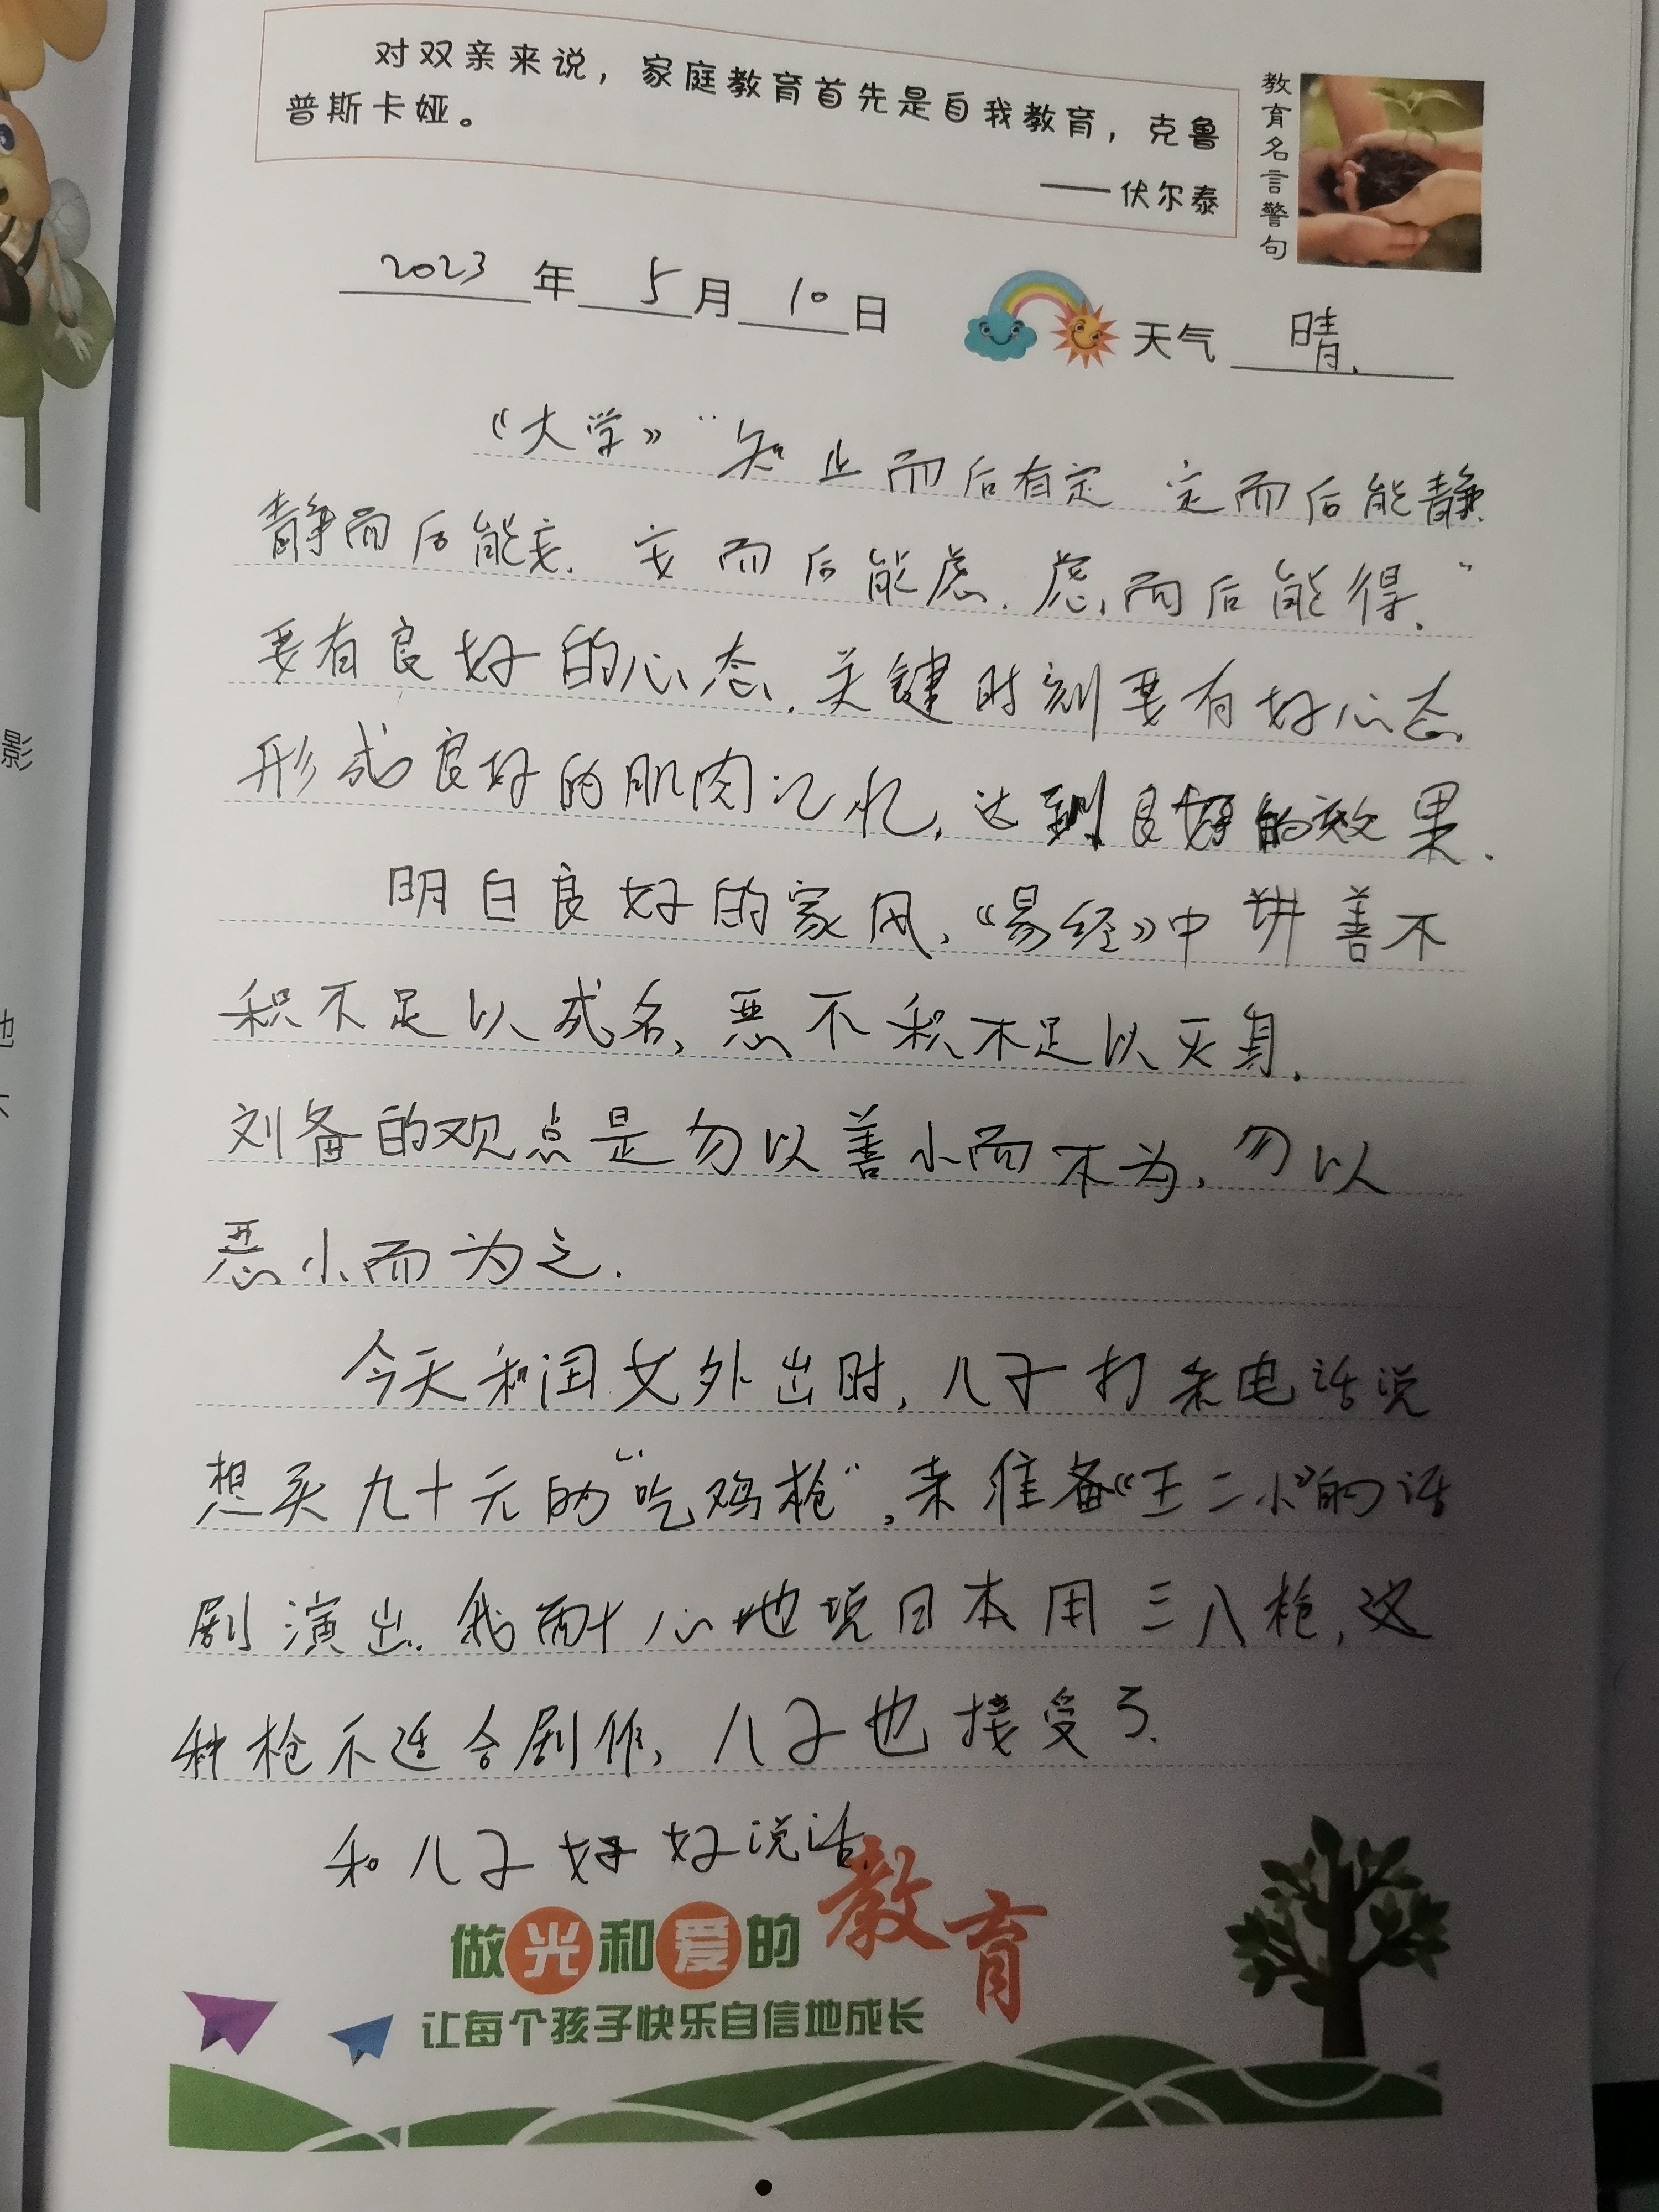 对双亲来说，家庭教育首先是自我教育，克鲁
普斯卡娅。
——伏尔泰
教育名言警句
2023年5月10日 天气 晴.
《大学》“知止而后有定 定而后能静.
静而后能安. 安而后能虑. 虑而后能得.”
要有良好的心态. 关键时刻要有好心态
形成良好的肌肉记忆, 达到良好的效果.
明白良好的家风,《易经》中讲善不
积不足以成名, 恶不积不足以灭身.
刘备的观点是勿以善小而不为, 勿以
恶小而为之.
今天和闺女外出时, 儿子打来电话说
想买九十元的“吃鸡枪”, 来准备《王二小》的话
剧演出. 我耐心地说日本用三八枪, 这
种枪不适合剧作, 儿子也接受了.
和儿子好好说话.
做光和爱的教育
让每个孩子快乐自信地成长
影
也